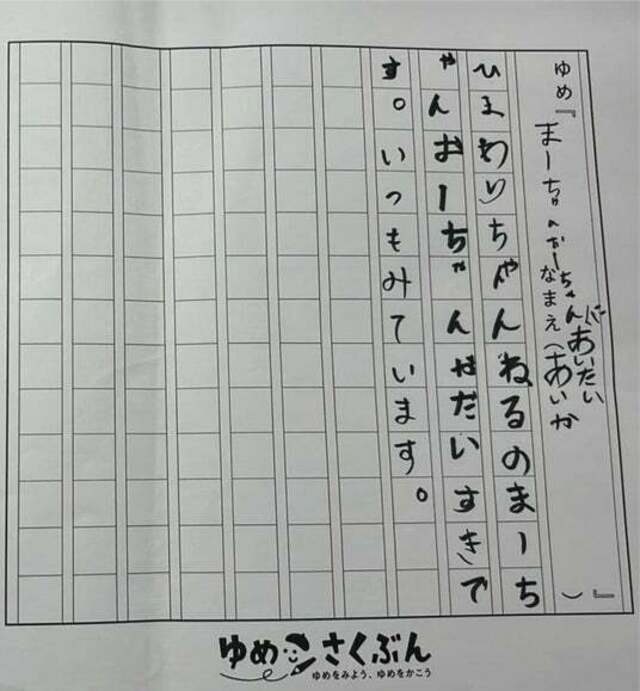 ゆめ『まーちゃんおーちゃんにあいたい』
なまえ(あいか)
ひまわりちゃんねるのまーち
ゃんおーちゃんがだいすきで
す。いつもみています。
ゆめさくぶん
ゆめをみよう、ゆめをかこう